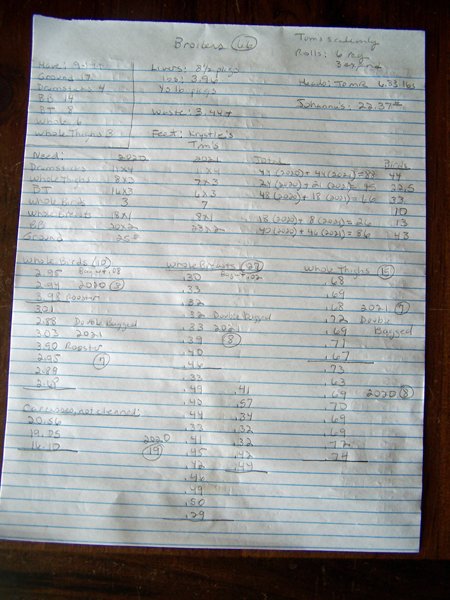 Broilers 66
Toms academy
Rolls: 6 pkg
Livers: 8 1/2 pkgs
Ground 17
Drumsticks 4
Heads: Tom's 6.33 lbs
BB 14
Waste: 3.44#
Johanna's: 22.37#
BT 8
Whole 6
Feet: Krystle's
Whole Thighs 3
Tom's
Need: 2020 2021 Total Birds
Drumsticks 11x4 11x4 44(2020)+44(2021)=88 44
Whole Thighs 8x3 7x3 24(2020)+21(2021)=45 22.5
BT 16x3 6x3 48(2020)+18(2021)=66 33
Whole Birds 3 7 10
Whole Breasts 18x1 8x1 18(2020)+8(2021)=26 13
BB 20x2 23x2 40(2020)+46(2021)=86 43
Ground
Whole Birds (10) Whole Breasts Whole Thighs (15)
2.95 Bag wt .08 .30 Bag wt .02 .68
2.94 2020 (3) .33 .69
3.98 Rooster .32 .68 2021 (7)
3.21 .32 Double Bagged .72 Double
2.88 Double Bagged .33 2021 .69 Bagged
3.03 2021 .39 (8) .71
3.90 Rooster .40 .67
2.95 (7) .46 .73
2.89 .33 .63
2.68 .49 .41 .69 2020 (8)
Carcasses, not cleaned: .42 .57 .70
20.56 .44 .34 .69
19.05 .33 .32 .69
16.10 2020 .41 .32 .72
(19) .45 .42 .74
.42 .44
.46
.49
.50
.29